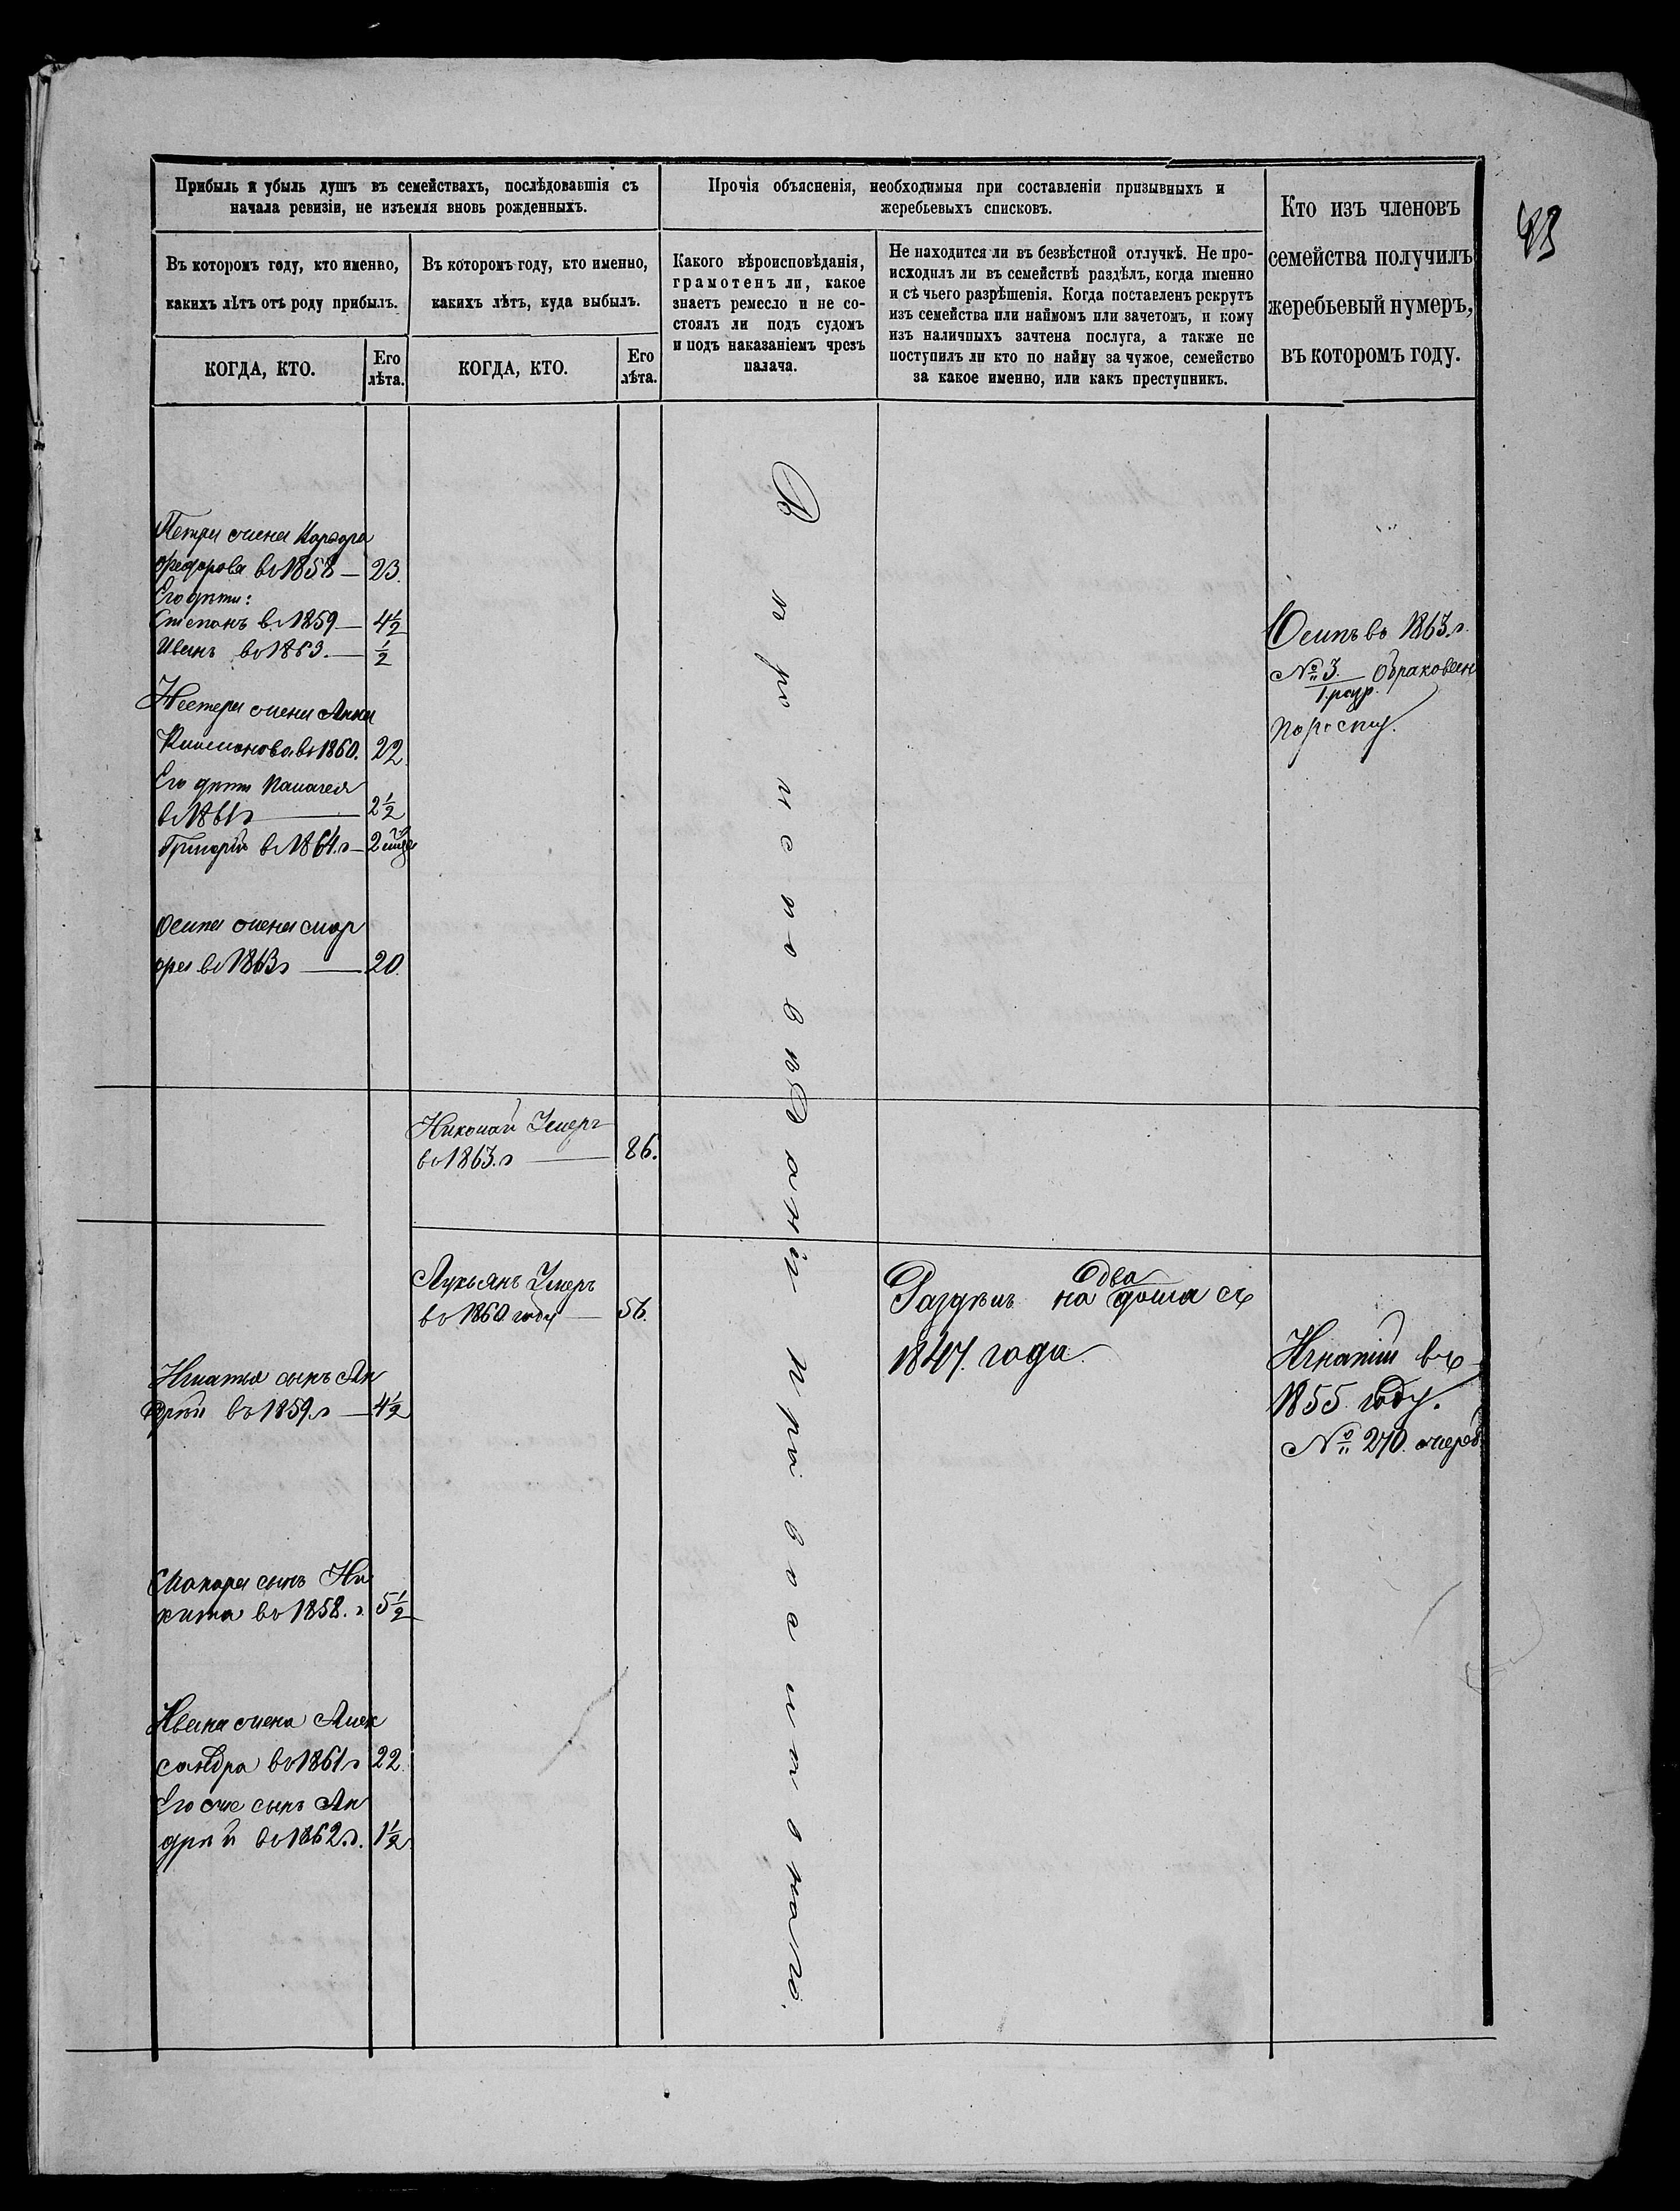 Прибыль и убыль душъ въ семействахъ, послѣдовавшія съ
начала ревизіи, не изъемля вновь рожденныхъ.
Прочія объясненія, необходимыя при составленіи призывныхъ и
жеребьевыхъ списковъ.
Кто изъ членовъ
семейства получилъ
жеребьевый нумеръ,
въ которомъ году.
Въ которомъ году, кто именно,
какихъ лѣтъ отъ роду прибылъ.
Въ которомъ году, кто именно,
какихъ лѣтъ, куда выбылъ.
Какого вѣроисповѣданія,
грамотенъ ли, какое
знаетъ ремесло и не со-
стоялъ ли подъ судомъ
и подъ наказаніемъ чрезъ
палача.
Не находится ли въ безвѣстной отлучкѣ. Не про-
исходилъ ли въ семействѣ раздѣлъ, когда именно
и съ чьего разрѣшенія. Когда поставленъ рекрутъ
изъ семейства или наймомъ или зачетомъ, и кому
изъ наличныхъ зачтена послуга, а также не
поступилъ ли кто по найму за чужое, семейство
за какое именно, или какъ преступникъ.
КОГДА, КТО.
Его
лѣта.
КОГДА, КТО.
Его
лѣта.
Петра жена
Федорова во 1858 — 23.
Его дѣти:
Степанъ в. 1859 — 4½
Иванъ во 1863. — ½
Нестера жена Анна
во 1860. 22
Его дѣти Палагея
в. 1861 г — 2½
Григорій в. 1864. г — 2
Осипа жена Мар
фа во 1863 г — 20.
Николай Умеръ
во 1863. г — 86.
Лукьянъ Умеръ
во 1860 году — 56.
Игнатья сынъ Ан
дрѣй въ 1859. г — 4½
Макара сынъ Ни
кита во 1858. г. 5½
Ивана жена Алек
сандра во 1861 г 22
Его же сынъ Ан
дрѣй во 1862. г. 1½
Вѣроисповѣданія православнаго.
Раздѣлъ на два дома съ
1847. года
Осипъ во 1863. г.
№ 3. Обракованъ
1. разр.
по росту.
Игнатій въ
1855 году.
№ 270. очеред